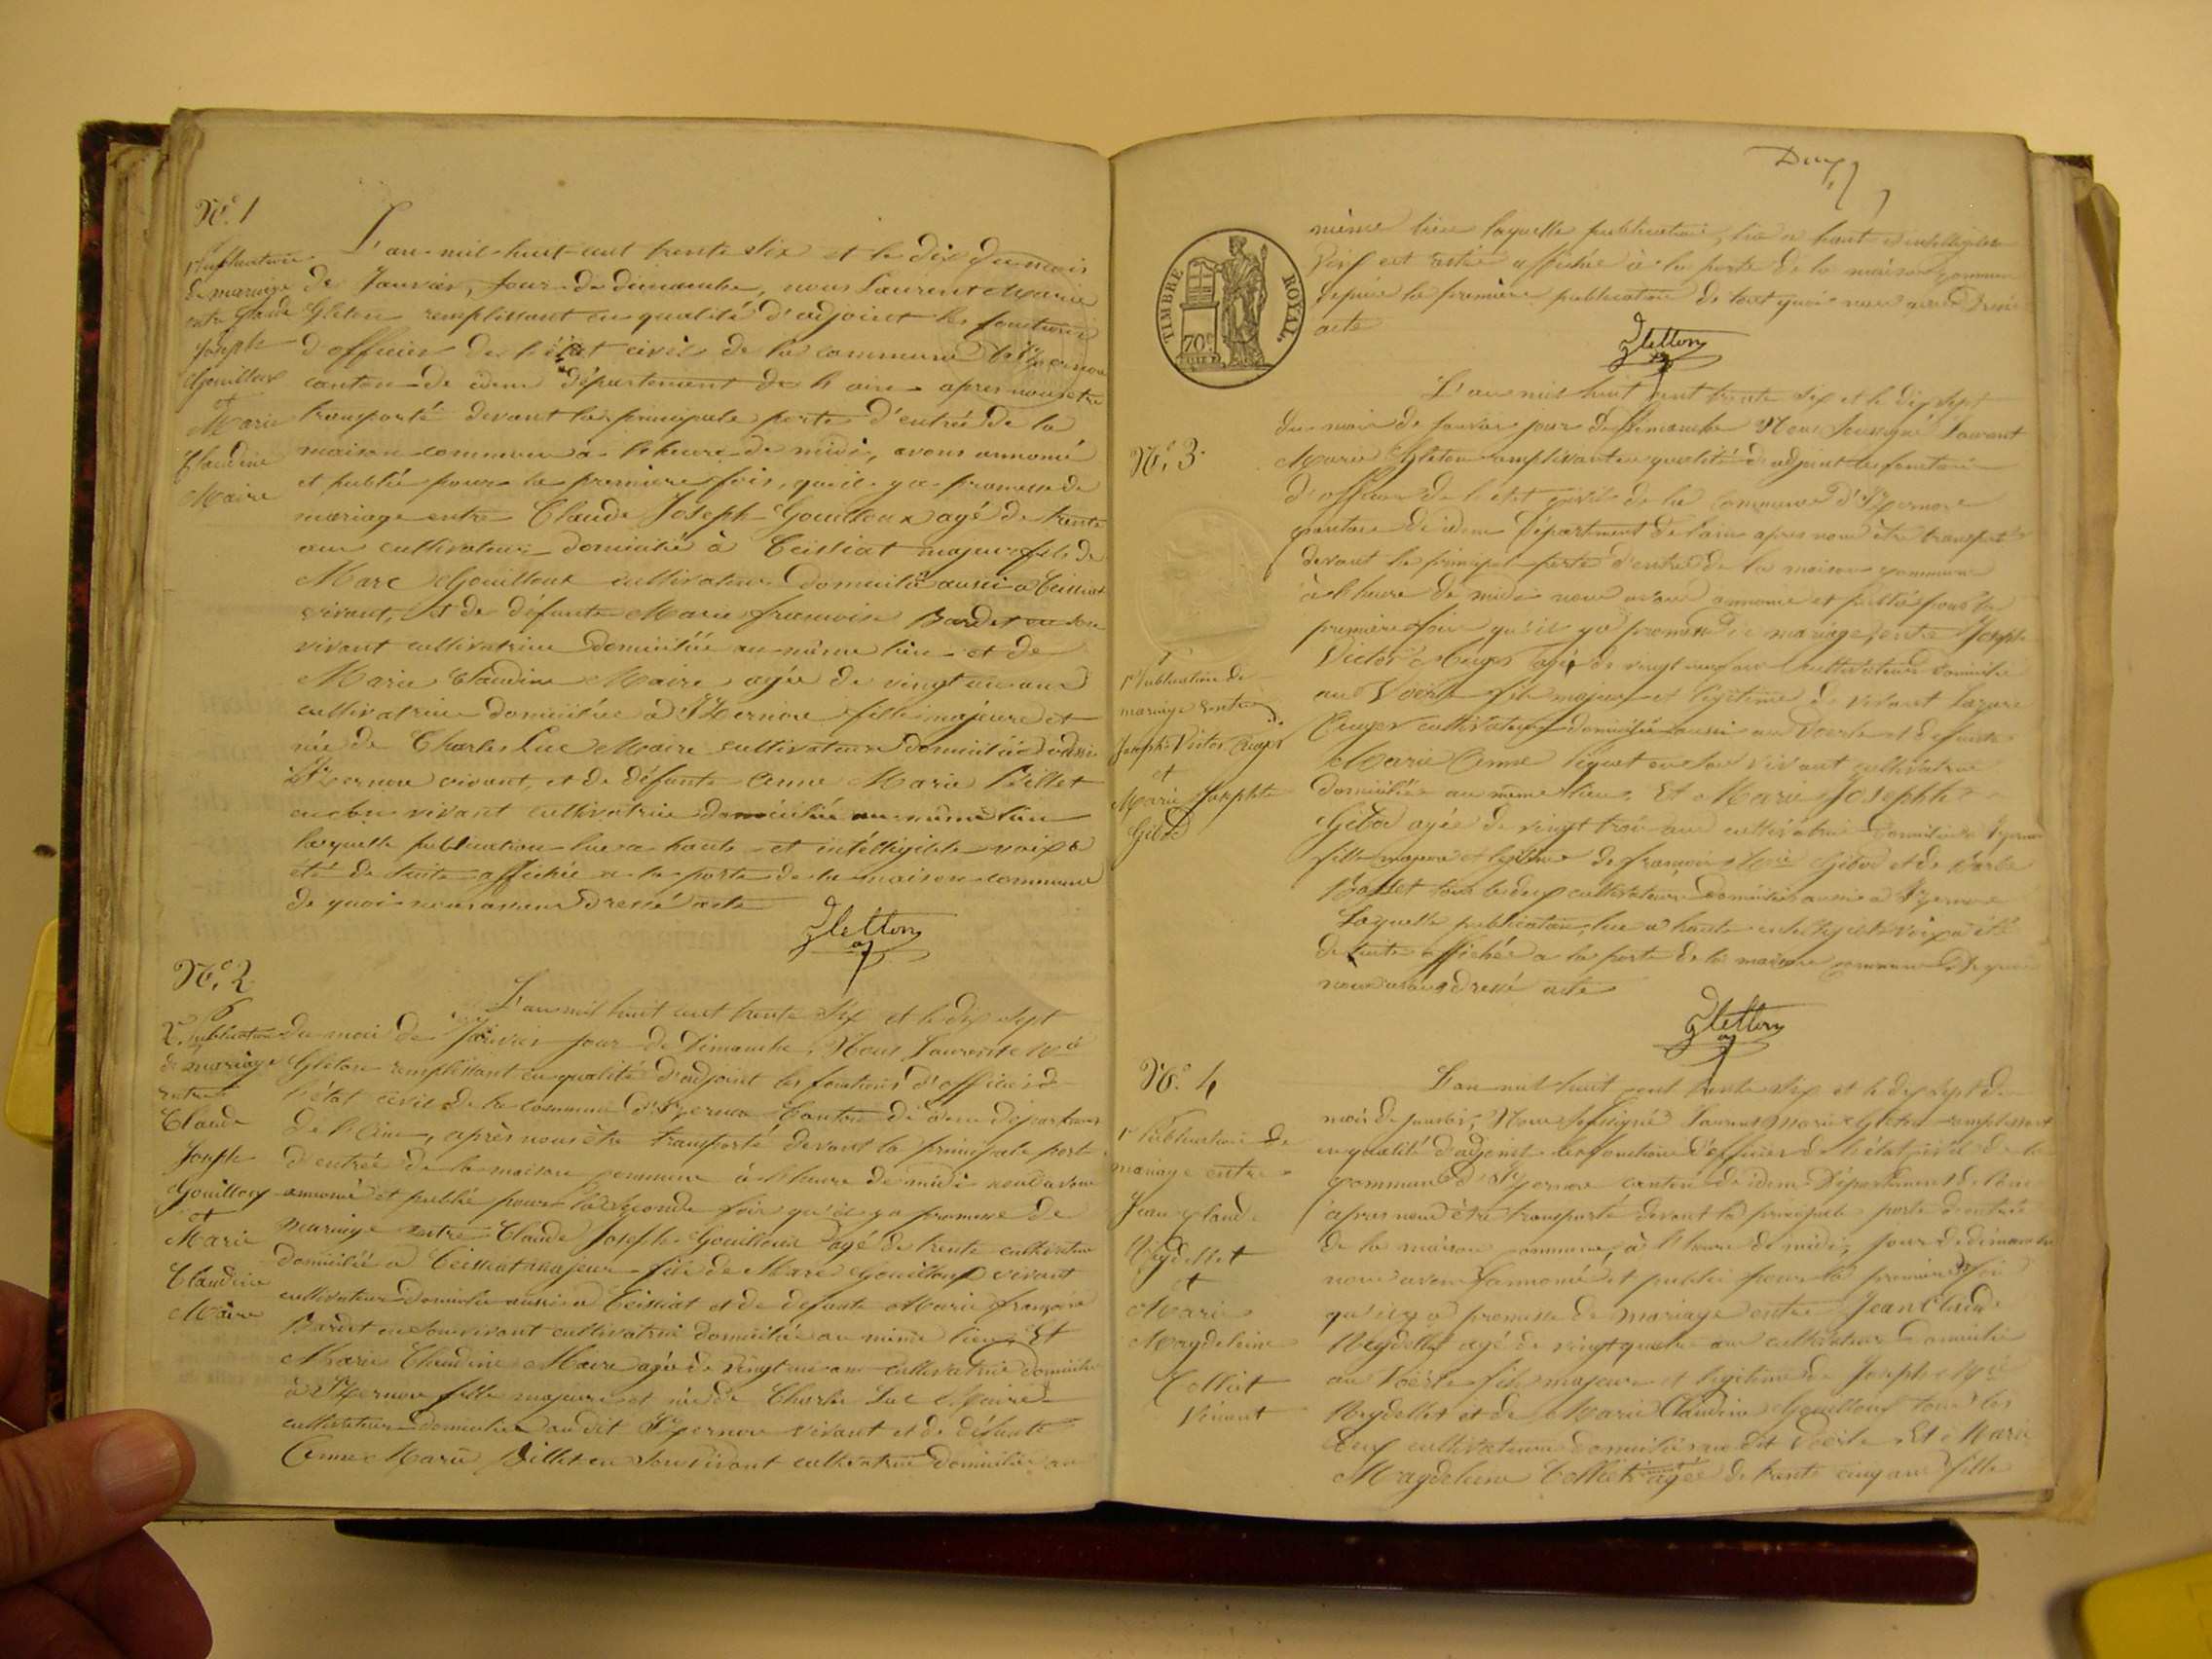 N.° 1
1re publication
de mariage
entre Claude
Joseph
Gouilloux
et
Marie
Claudine
Maire
L'an mil huit cent trente Six et le dix du mois
de Janvier, Jour de dimanche, nous Laurent Marie
Gleton remplissant en qualité d'adjoint les fonctions
d'officier de l'état civil de la commune d'Izernore
canton de idem département de l'ain après nous etre
transporté devant la principale porte d'entrée de la
maison commune à l'heure de midi, avons annoncé
et publié pour la première fois, qu'il y a promesse de
mariage entre Claude Joseph Gouilloux agé de trente
ans cultivateur domicilié à Ceissiat majeur fils de
Marc Gouilloux cultivateur domicilié aussi a Ceissiat
vivant, et de défunte Marie françoise Bardet en son
vivant cultivatrice domiciliée au même lieu et de
Marie Claudine Maire agée de vingt un ans
cultivatrice domiciliée à Izernore fille majeure et
née de Charles Luc Maire cultivateur domicilié
Izernore vivant, et de défunte Anne Marie Billet
en son vivant cultivatrice domiciliée au même lieu
laquelle publication lue a haute et intélligible voix a
été de suite affichée a la porte de la maison commune
de quoi nous avons dressé acte
Gletton
N.° 2
2e Publication
de mariage
entre
Claude
Joseph
Gouilloux
et
Marie
Claudine
Maire
L'an mil huit cent trente Six et le dix sept
du mois de Janvier jour de Dimanche, Nous Laurent Mie
Gleton remplissant en qualité d'adjoint les fonctions d'officier de
l'état civil de la commune d'Izernore Canton de idem département
de l'Ain, après nous être transporté devant la principale porte
d'entrée de la maison commune à l'heure de midi nous avons
annoncé et publié pour la seconde fois qu'il y a promesse de
mariage entre Claude Joseph Gouilloux agé de trente cultivateur
domicilié a Ceissiat majeur fils de Marc Gouilloux vivant
cultivateur domicilié aussi a Ceissiat et de défunte Marie françoise
Bardet en son vivant cultivatrice domiciliée au même lieu, Et
Marie Claudine Maire agée de vingt un ans cultivatrice domiciliée
à Izernore fille majeure et née de Charles Luc Maire
cultivateur domicilié au dit Izernore vivant et de défunte
Anne Marie Billet en son vivant cultivatrice domiciliée au
TIMBRE ROYAL
70c
même lieu laquelle publication, lue a haute et intelligible
voix et restée affichée à la porte de la maison commune
depuis la première publication de tout quoi nous avons Dressé
acte
Gletton
N.° 3.
1re Publication de
mariage entre
Joseph Victor
et
Marie Josephte
Gibod
L'an mil huit cent trente Six et le dix sept
du mois de Janvier jour de Dimanche Nous Soussigné Laurent
Marie Gleton remplissant en qualité d'adjoint les fonctions
d'officier de l'etat civil de la Commune d'Izernore
canton de idem Département de l'ain après nous être transporté
devant la principal porte d'entrée de la maison commune
à l'heure de midi nous avons annoncé et publié pour la
première fois qu'il y a promesse de mariage, entre Joseph
Victor agé de vingt neuf ans Cultivateur domicilié
au Voërle fils majeur et légitime de vivant Lazare
cultivateur domicilié aussi au Voerle et defunte
Marie Anne en son vivant cultivatrice
domiciliée au même lieu. Et Marie Josephte
Gibod agée de vingt trois ans cultivatrice domiciliée a Izernore
fille majeure et légitime de françois Marie Gibod et de
tous les deux cultivateurs domiciliés aussi a Izernore
Laquelle publication lue a haute intelligible voix a été
de suite affichée a la porte de la maison commune De quoi
nous avons dressé acte
Gletton
N.° 4
1re Publication de
mariage entre
Jean Claude
Reydellet
et
Marie
Magdeleine
Colliat
Vincent
L'an mil huit cent trente Six et le dix sept du
mois de janvier, Nous Soussigné Laurent Marie Gleton remplissant
en qualité d'adjoint les fonctions d'officier de l'état civil de la
commune d'Izernore canton de idem Département de l'Ain
après nous être transporté devant la principale porte d'entrée
de la maison commune, à l'heure de midi, jour de dimanche
nous avons annoncé et publié pour la première foi
qu'il y a promesse de mariage entre Jean Claude
Reydellet agé de vingt quatre ans cultivateur Domicilié
au Voërle fils majeur et légitime de Joseph Mie
Reydellet et de Marie Claudine Gouilloux tous les
deux cultivateurs domiciliés au dit Voërle Et Marie
Magdeleine Colliat agée de trente cinq ans fille